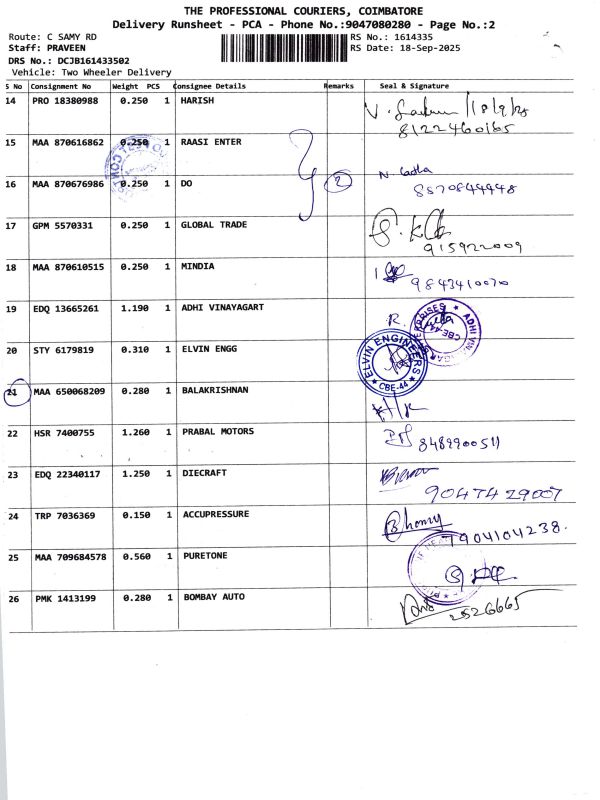 THE PROFESSIONAL COURIERS, COIMBATORE
Delivery Runsheet - PCA - Phone No.:9047080280 - Page No.:2
Route: C SAMY RD RS No.: 1614335
Staff: PRAVEEN RS Date: 18-Sep-2025
DRS No.: DCJB161433502
Vehicle: Two Wheeler Delivery
S No Consignment No Weight PCS Consignee Details Remarks Seal & Signature
14 PRO 18380988 0.250 1 HARISH
8122460165
15 MAA 870616862 0.250 1 RAASI ENTER
16 MAA 870676986 0.250 1 DO 2
8870844448
17 GPM 5570331 0.250 1 GLOBAL TRADE
915922009
18 MAA 870610515 0.250 1 MINDIA
9843410070
19 EDQ 13665261 1.190 1 ADHI VINAYAGART
R.
20 STY 6179819 0.310 1 ELVIN ENGG
ELVIN ENGINEERS
CBE-44
21 MAA 650068209 0.280 1 BALAKRISHNAN
22 HSR 7400755 1.260 1 PRABAL MOTORS
8489900511
23 EDQ 22340117 1.250 1 DIECRAFT
9047429007
24 TRP 7036369 0.150 1 ACCUPRESSURE
7904104238.
25 MAA 709684578 0.560 1 PURETONE
26 PMK 1413199 0.280 1 BOMBAY AUTO
2526665